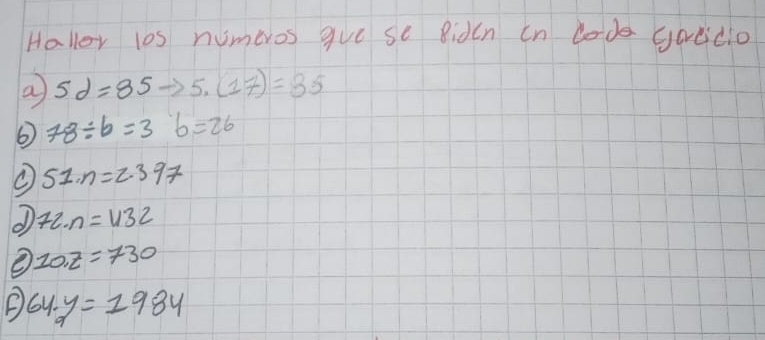 Hallar los números que se piden en cada ejercicio
a) 5d=85→5.(17)=85
b) 78÷b=3 b=26
c) 51.n=2397
d) 72.n=432
e) 10.z=730
f) 64.y=1984